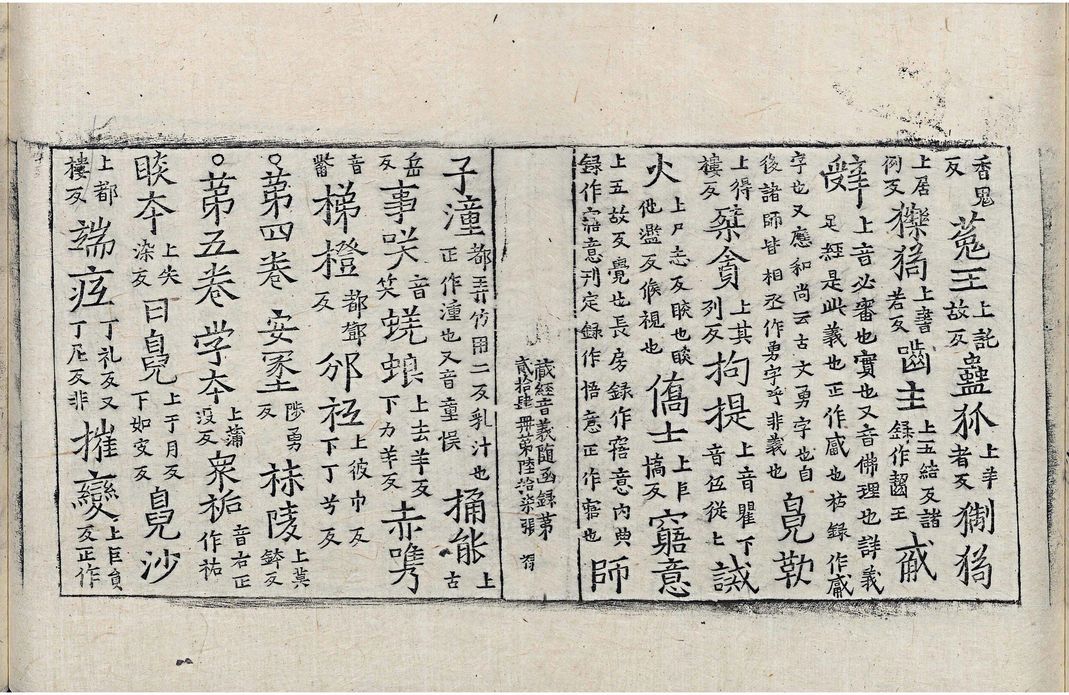 香鬼反 菟王 上託故反 蠱狐 上羊者反 猘㺃
上居例反 㹱㺃 上書若反 嚙主 上五結反諸録作齧王 戚
上音必審也實也又音佛理也詳義足經是此義也正作感也枯録作感
字也又應和尚云古文勇字也自後諸師皆相丞作勇字乎非義也 皃勒
上得樓反 桀貪 上其列反 拘提 上音瞿下音伍從上 誡
火 上尸志反睒也睒他濫反候視也 僑士 上巨搞反 寤意
上五故反覺也長房録作寤意內典録作寤意刋定録作悟意正作寤也 師
藏經音義随函録第貳拾肆冊第陸拾柒張
子湩 都弄竹用二反乳汁也正作湩也又音童悮 捅能 上古
岳反 事咲 音笑 蜣蜋 上去羊反下力羊反 赤嶲
音觜 梯橙 都鄧反 邠祁 上彼巾反下丁兮反
○第四卷 安冢 陟勇反 秣陵 上莫鉢反
○第五卷 学夲 上蒲没反 衆栃 音右正作祐
睒夲 上失染反 曰皃 上于月反下如安反 皃沙
上都樓反 端疷 丁礼反又丁尼反非 摧變 上巨負反正作